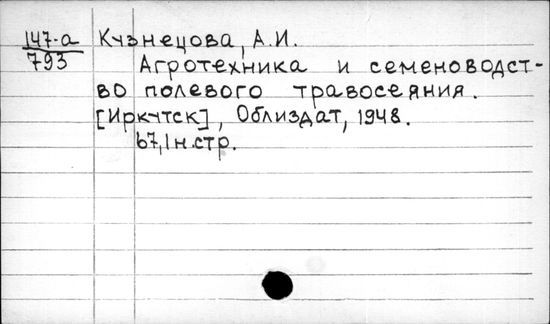 147-а Кузнецова, А.И.
793
Агротехника и семеноводст-
во полевого травосеяния.
[Иркутск], Облиздат, 1948.
67,1 н.стр.